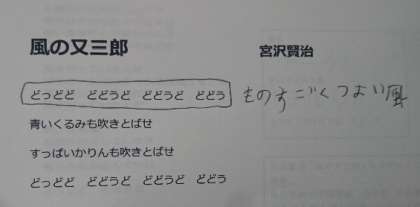 風の又三郎 宮沢賢治
どっどど どどうど どどうど どどう ものすごくつよい風
青いくるみも吹きとばせ
すっぱいかりんも吹きとばせ
どっどど どどうど どどうど どどう